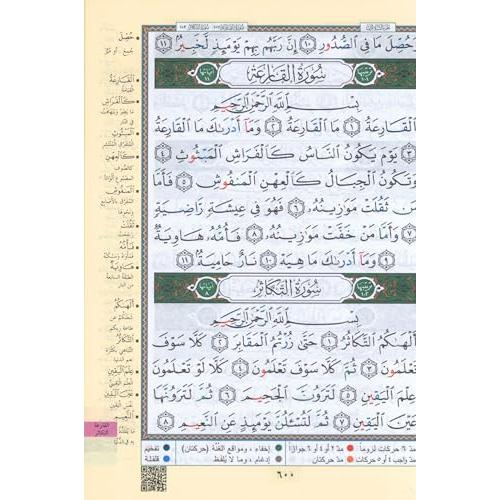 وَحُصِّلَ مَا فِي الصُّدُورِ ۝١٠ إِنَّ رَبَّهُم بِهِمْ يَوْمَئِذٍ لَّخَبِيرٌ ۝١١
سُورَةُ القَارِعَة
بِسْمِ اللَّهِ الرَّحْمَٰنِ الرَّحِيمِ
الْقَارِعَةُ ۝١ مَا الْقَارِعَةُ ۝٢ وَمَا أَدْرَاكَ مَا الْقَارِعَةُ
۝٣ يَوْمَ يَكُونُ النَّاسُ كَالْفَرَاشِ الْمَبْثُوثِ ۝٤
وَتَكُونُ الْجِبَالُ كَالْعِهْنِ الْمَنفُوشِ ۝٥ فَأَمَّا
مَن ثَقُلَتْ مَوَازِينُهُ ۝٦ فَهُوَ فِي عِيشَةٍ رَّاضِيَةٍ
۝٧ وَأَمَّا مَنْ خَفَّتْ مَوَازِينُهُ ۝٨ فَأُمُّهُ هَاوِيَةٌ
۝٩ وَمَا أَدْرَاكَ مَا هِيَهْ ۝١٠ نَارٌ حَامِيَةٌ ۝١١
سُورَةُ التَّكَاثُر
بِسْمِ اللَّهِ الرَّحْمَٰنِ الرَّحِيمِ
أَلْهَاكُمُ التَّكَاثُرُ ۝١ حَتَّىٰ زُرْتُمُ الْمَقَابِرَ ۝٢ كَلَّا سَوْفَ
تَعْلَمُونَ ۝٣ ثُمَّ كَلَّا سَوْفَ تَعْلَمُونَ ۝٤ كَلَّا لَوْ تَعْلَمُونَ
عِلْمَ الْيَقِينِ ۝٥ لَتَرَوُنَّ الْجَحِيمَ ۝٦ ثُمَّ لَتَرَوُنَّهَا
عَيْنَ الْيَقِينِ ۝٧ ثُمَّ لَتُسْأَلُنَّ يَوْمَئِذٍ عَنِ النَّعِيمِ ۝٨
حُصِّلَ
جمع، أو مُيّز
القَارِعَةُ
القيامة
كَالْفَرَاشِ
المَبْثُوثِ
المتفرق المنتشر
كَالْعِهْنِ
كالصوف
المَنفُوشِ
المفرق بالأصابع
ثَقُلَتْ
فَأُمُّهُ
هَاوِيَةٌ
أَلْهَاكُمُ
شغلكم عن
طاعة ربكم
التَّكَاثُرُ
التباهي بكثرة
عِلْمَ الْيَقِينِ
عَيْنَ الْيَقِينِ
النَّعِيمِ
القارعة
التكاثر
مدّ ٦ حركات لزوماً مدّ ٢ أو ٤ أو ٦ جوازاً إخفاء، ومواقع الغنّة (حركتان) تفخيم
مدّ واجب ٤ أو ٥ حركات مدّ حركتان إدغام، وما لا يُلفظ قلقلة
٦٠٠